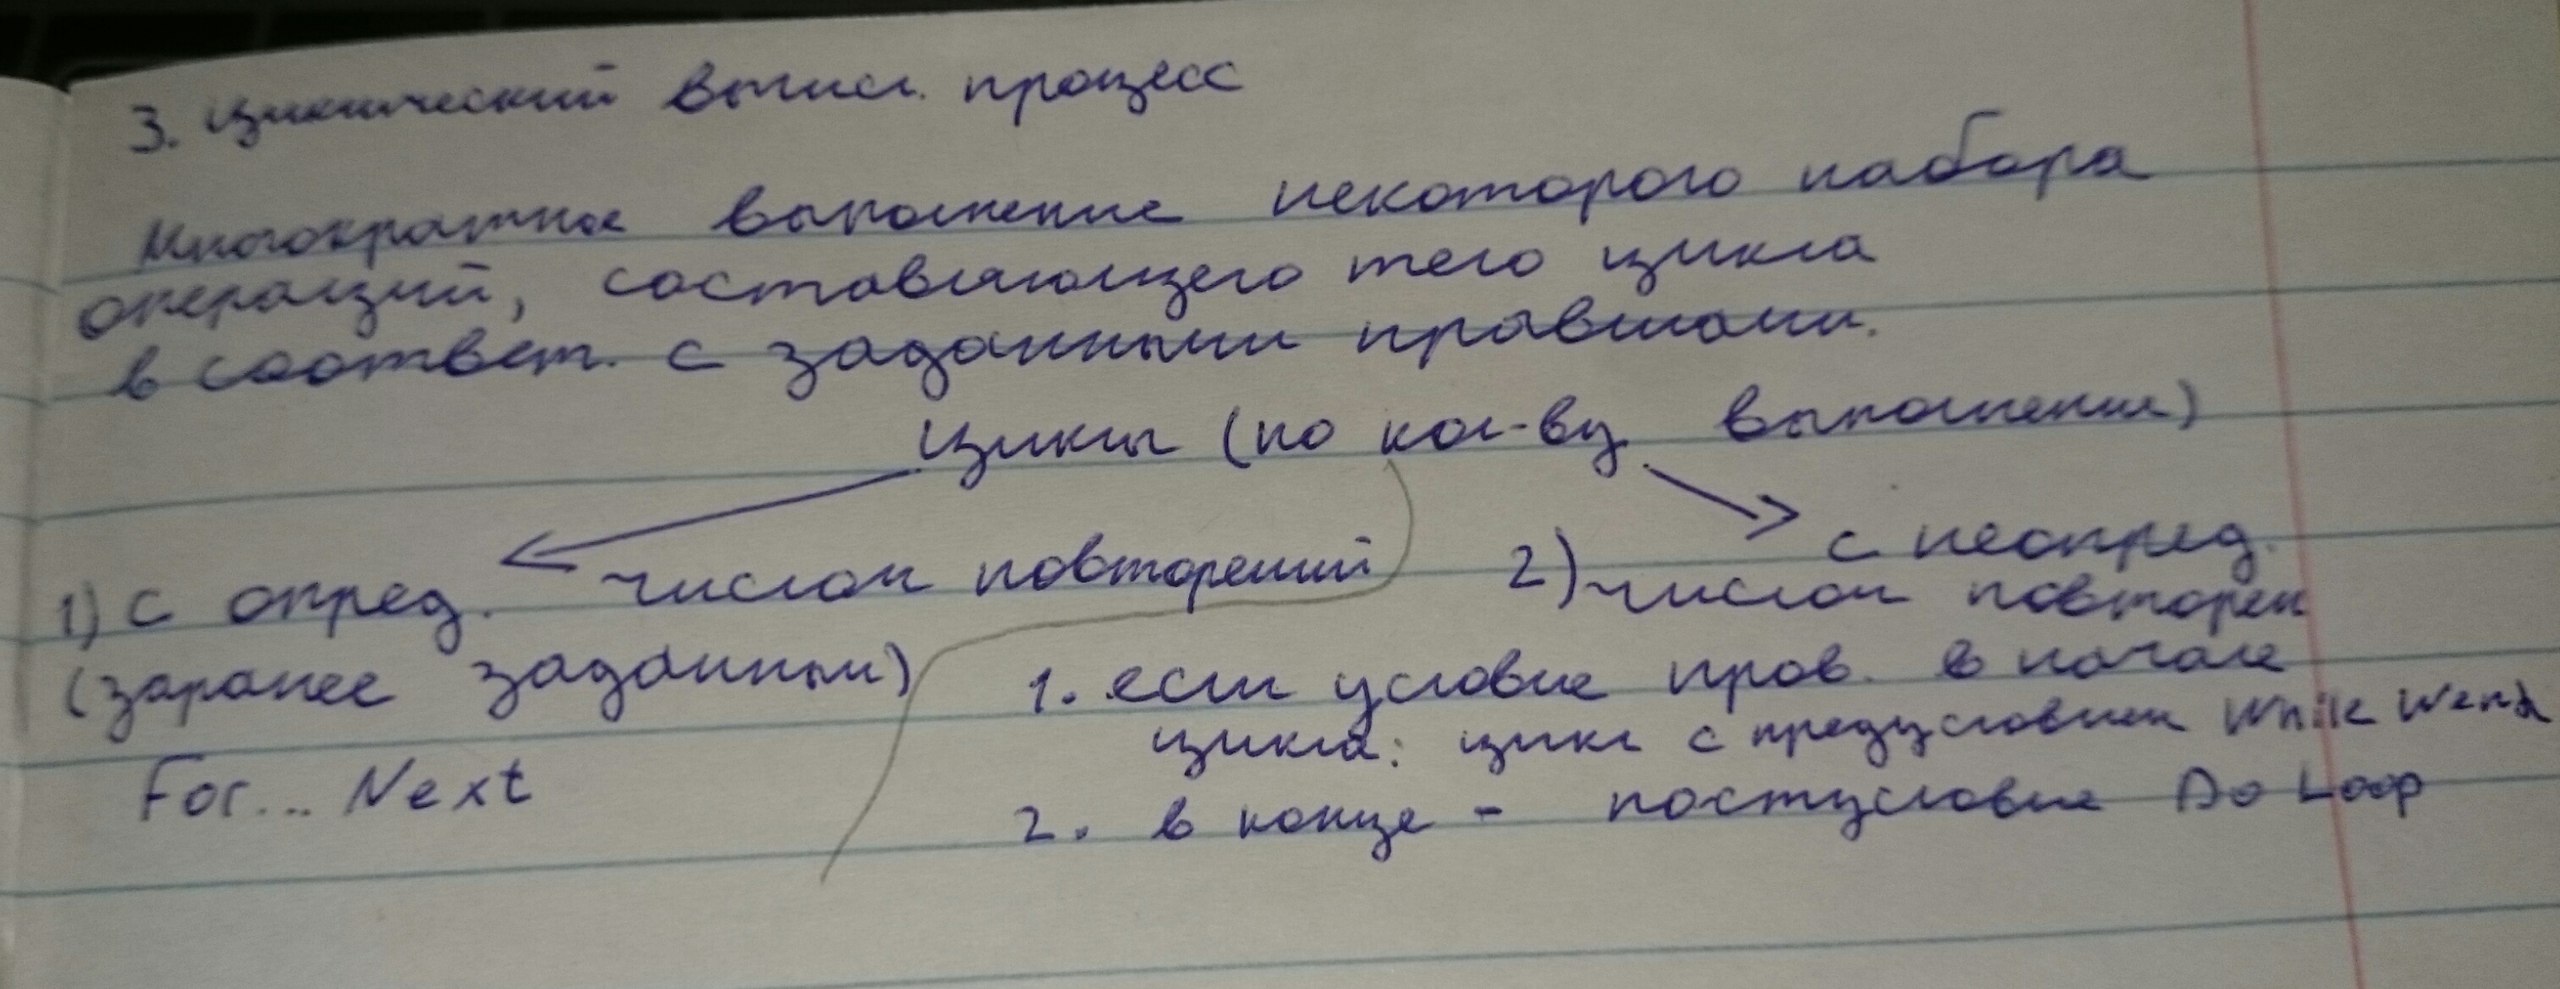 3. Циклический вычисл. процесс
Многократное выполнение некоторого набора
операций, составляющего тело цикла
в соответ. с заданными правилами.
Циклы (по кол-ву выполнения)
1) с опред. числом повторений
(заранее заданным)
For... Next
2) с неопред.
числом повторен
1. если условие пров. в начале
цикла: цикл с предусловием While Wend
2. в конце - постусловие Do Loop